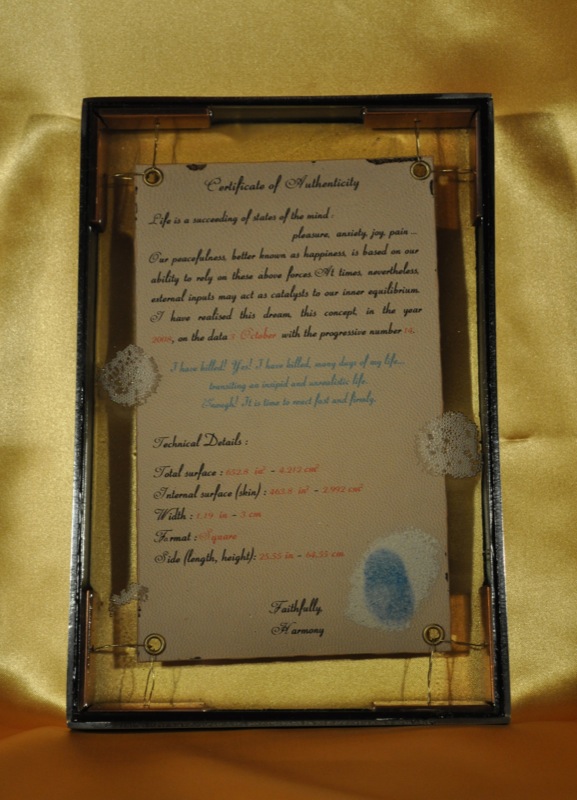 Certificate of Authenticity
Life is a succeeding of states of the mind :
pleasure, anxiety, joy, pain ...
Our peacefulness, better known as happiness, is based on our
ability to rely on these above forces. At times, nevertheless,
esternal inputs may act as catalysts to our inner equilibrium.
I have realised this dream, this concept, in the year
2008, on the data 3 October with the progressive number 14.
I have killed! Yes! I have killed, many days of my life...
transiting an insipid and unrealistic life.
Enough! It is time to react fast and firmly.
Technical Details :
Total surface : 652.8 in² - 4.212 cm²
Internal surface (skin) : 463.8 in² - 2.992 cm²
Width : 1.19 in - 3 cm
Format : Square
Side (length, height): 25.55 in - 64.55 cm
Faithfully,
Harmony